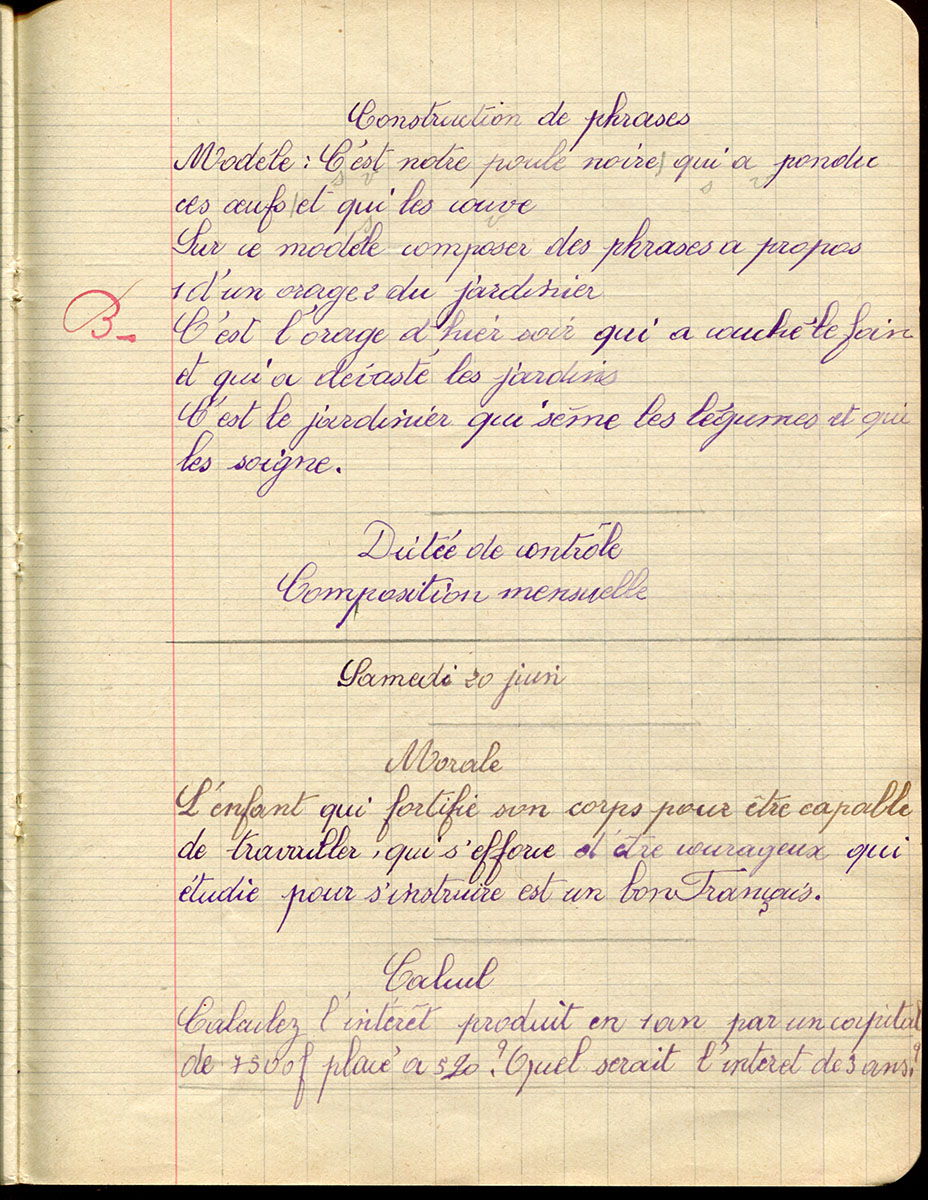 Construction de phrases
Modèle : C'est notre poule noire / qui a pondu
s v s v
ces œufs / et qui les couve
s v
Sur ce modèle composer des phrases a propos
1 d'un orage 2 du jardinier
B-
C'est l'orage d'hier soir qui a couché le foin
et qui a dévasté les jardins
C'est le jardinier qui sème les légumes et qui
les soigne.
Dictée de contrôle
Composition mensuelle
Samedi 20 juin
Morale
L'enfant qui fortifie son corps pour être capable
de travailler, qui s'efforce d'être courageux qui
étudie pour s'instruire est un bon Français.
Calcul
Calculez l'intérêt produit en 1 an par un capital
de 7500f placé a ? Quel serait l'interet de 3 ans ?